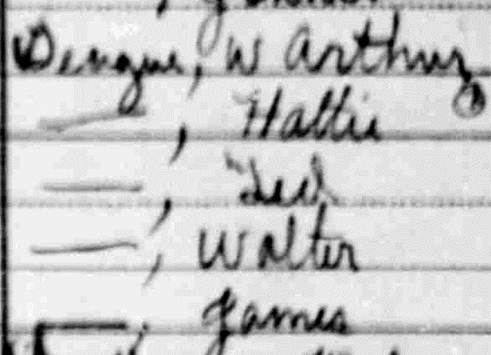 W Arthur
—, Hattie
—, Ted
—, Walter
—, James